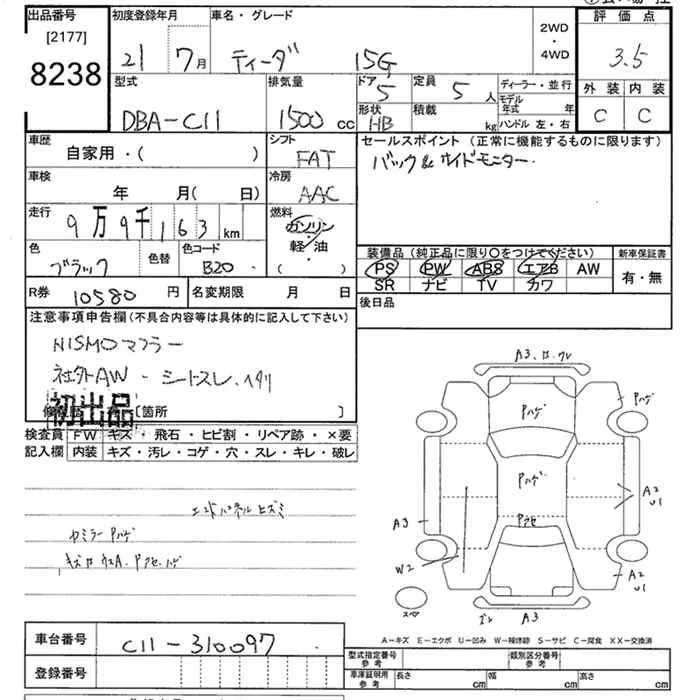 出品番号
[2177]
8238
初度登録年月
21 7月
車名・グレード
ティーダ 15G
2WD
・
4WD
評価点
3.5
外装 内装
C C
型式
DBA-C11
排気量
1500 cc
ドア
5
定員
5 人
形状
HB
積載
kg
ディーラー・並行
モデル年式 年
ハンドル 左・右
車歴
自家用・( )
シフト
FAT
セールスポイント (正常に機能するものに限ります)
バック& サイドモニター
車検
年 月( 日)
冷房
AAC
走行
9万9千163 km
燃料
ガソリン
・
軽・油
・
( )
色
ブラック
色替
色コード
B20
装備品 (純正品に限り○をつけてください)
PS PW ABS エアB AW
SR ナビ TV カワ
新車保証書
有・無
R券 10580 円
名変期限 月 日
後日品
注意事項申告欄 (不具合内容等は具体的に記入して下さい)
NISMO マフラー
社外AW - シートスレ、ヘタリ
初出品
[箇所 ]
検査員 FW キズ・飛石・ヒビ割・リペア跡・×要
記入欄 内装 キズ・汚レ・コゲ・穴・スレ・キレ・破レ
エンドパネルヒズミ
Pハゲ
A3
Pハゲ
Pハゲ
Pハゲ
Pアセ
A2
U1
A3
W2
A2
U1
スペア
A3
A-キズ E-エクボ U-凹み W-補修跡 S-サビ C-腐食 XX-交換済
車台番号
C11-310097
登録番号
型式指定番号
参考
類別区分番号
参考
車庫証明用
参考
長さ cm
幅 cm
高さ cm